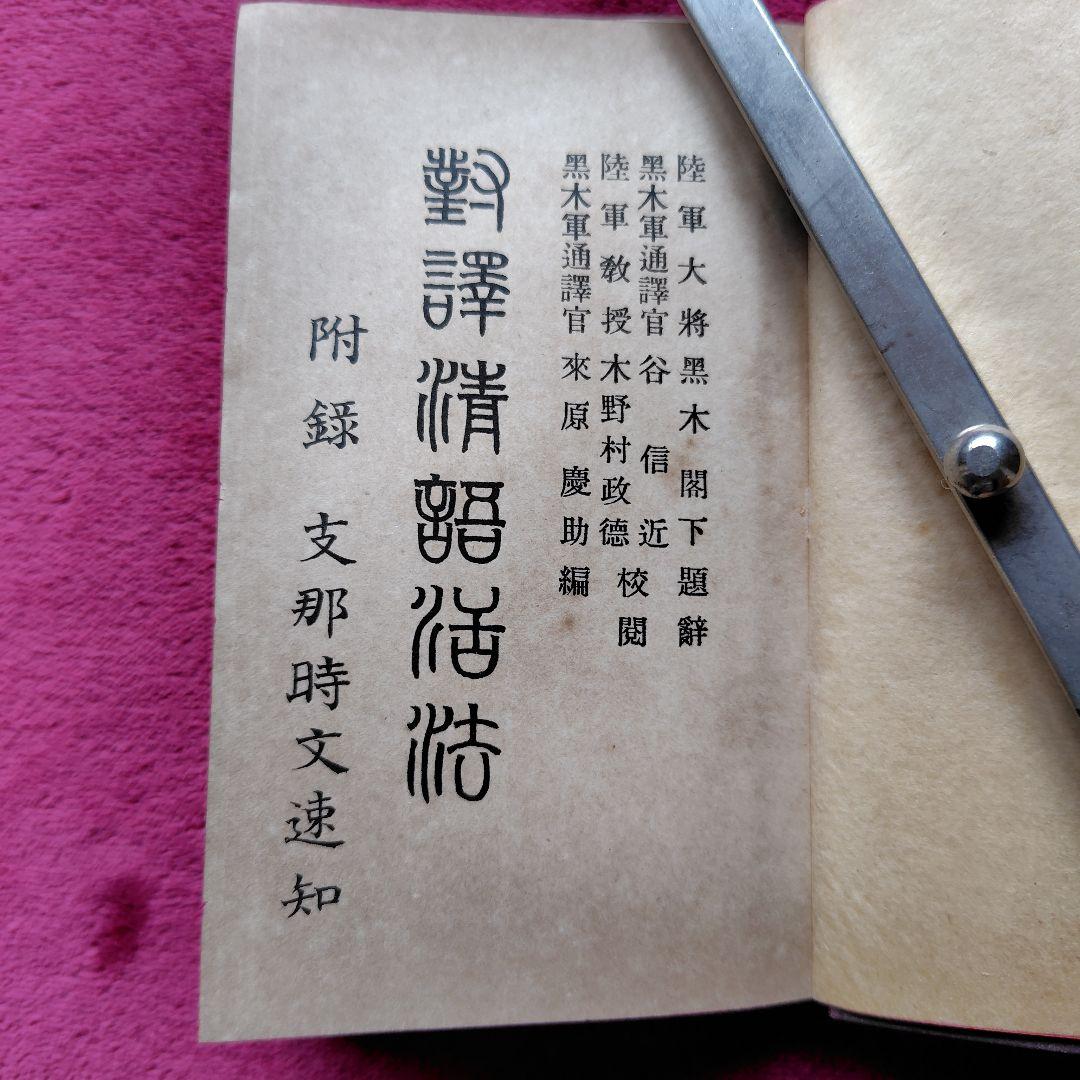 陸軍大將黑木閣下題辭
黑木軍通譯官谷信近
陸軍教授木野村政德
校閱
黑木軍通譯官來原慶助編
對譯清語活法
附錄 支那時文速知